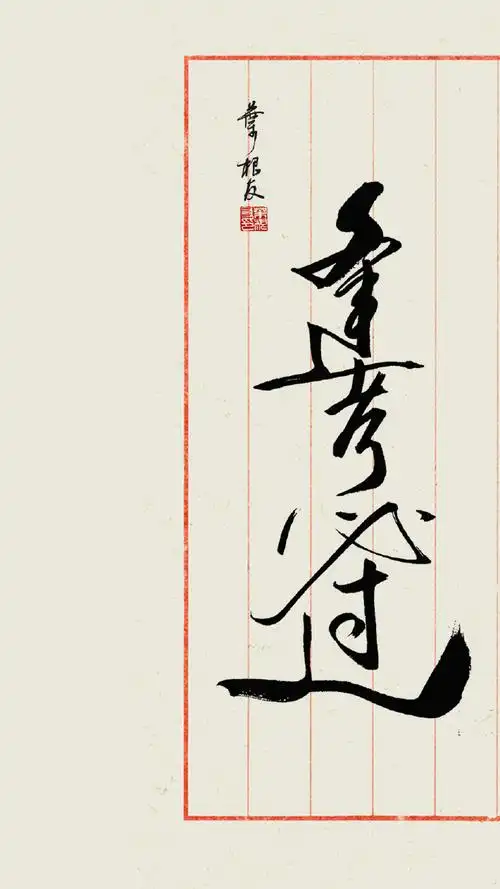 逢考必过
葉根友